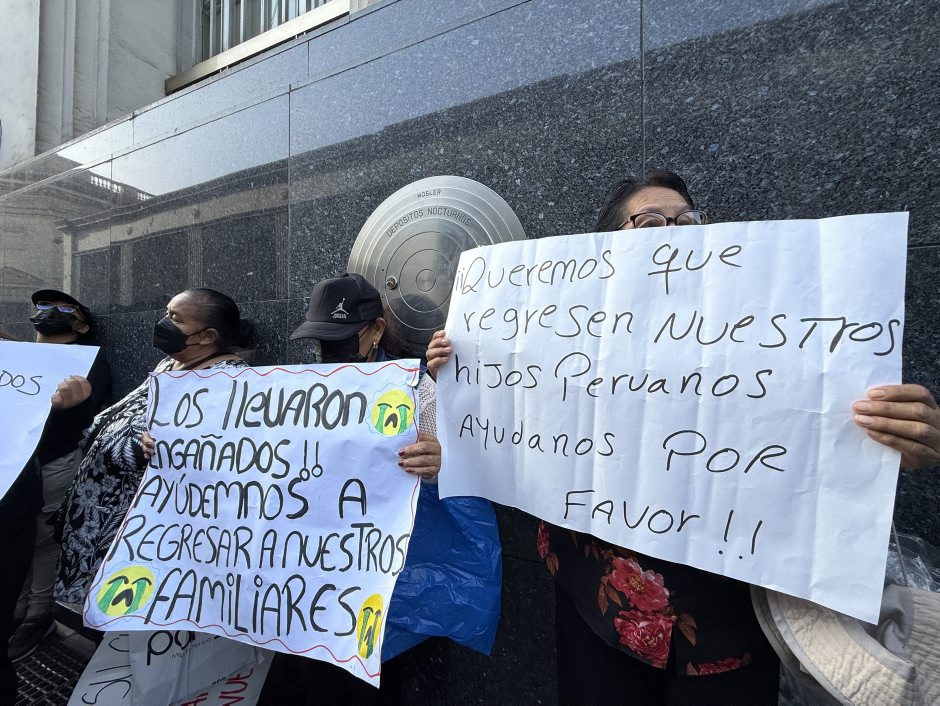 MOSLER
DEPOSITOS NOCTURNOS
JORDAN
DOS
LOS llEVARON
ENGAÑADOS!!
AYÚDEMNOS A
REGRESAR A NUESTROS
FAMILIARES
¡¡Queremos que
regresen Nuestros
hijos Peruanos
Ayudanos POR
FAVOR!!